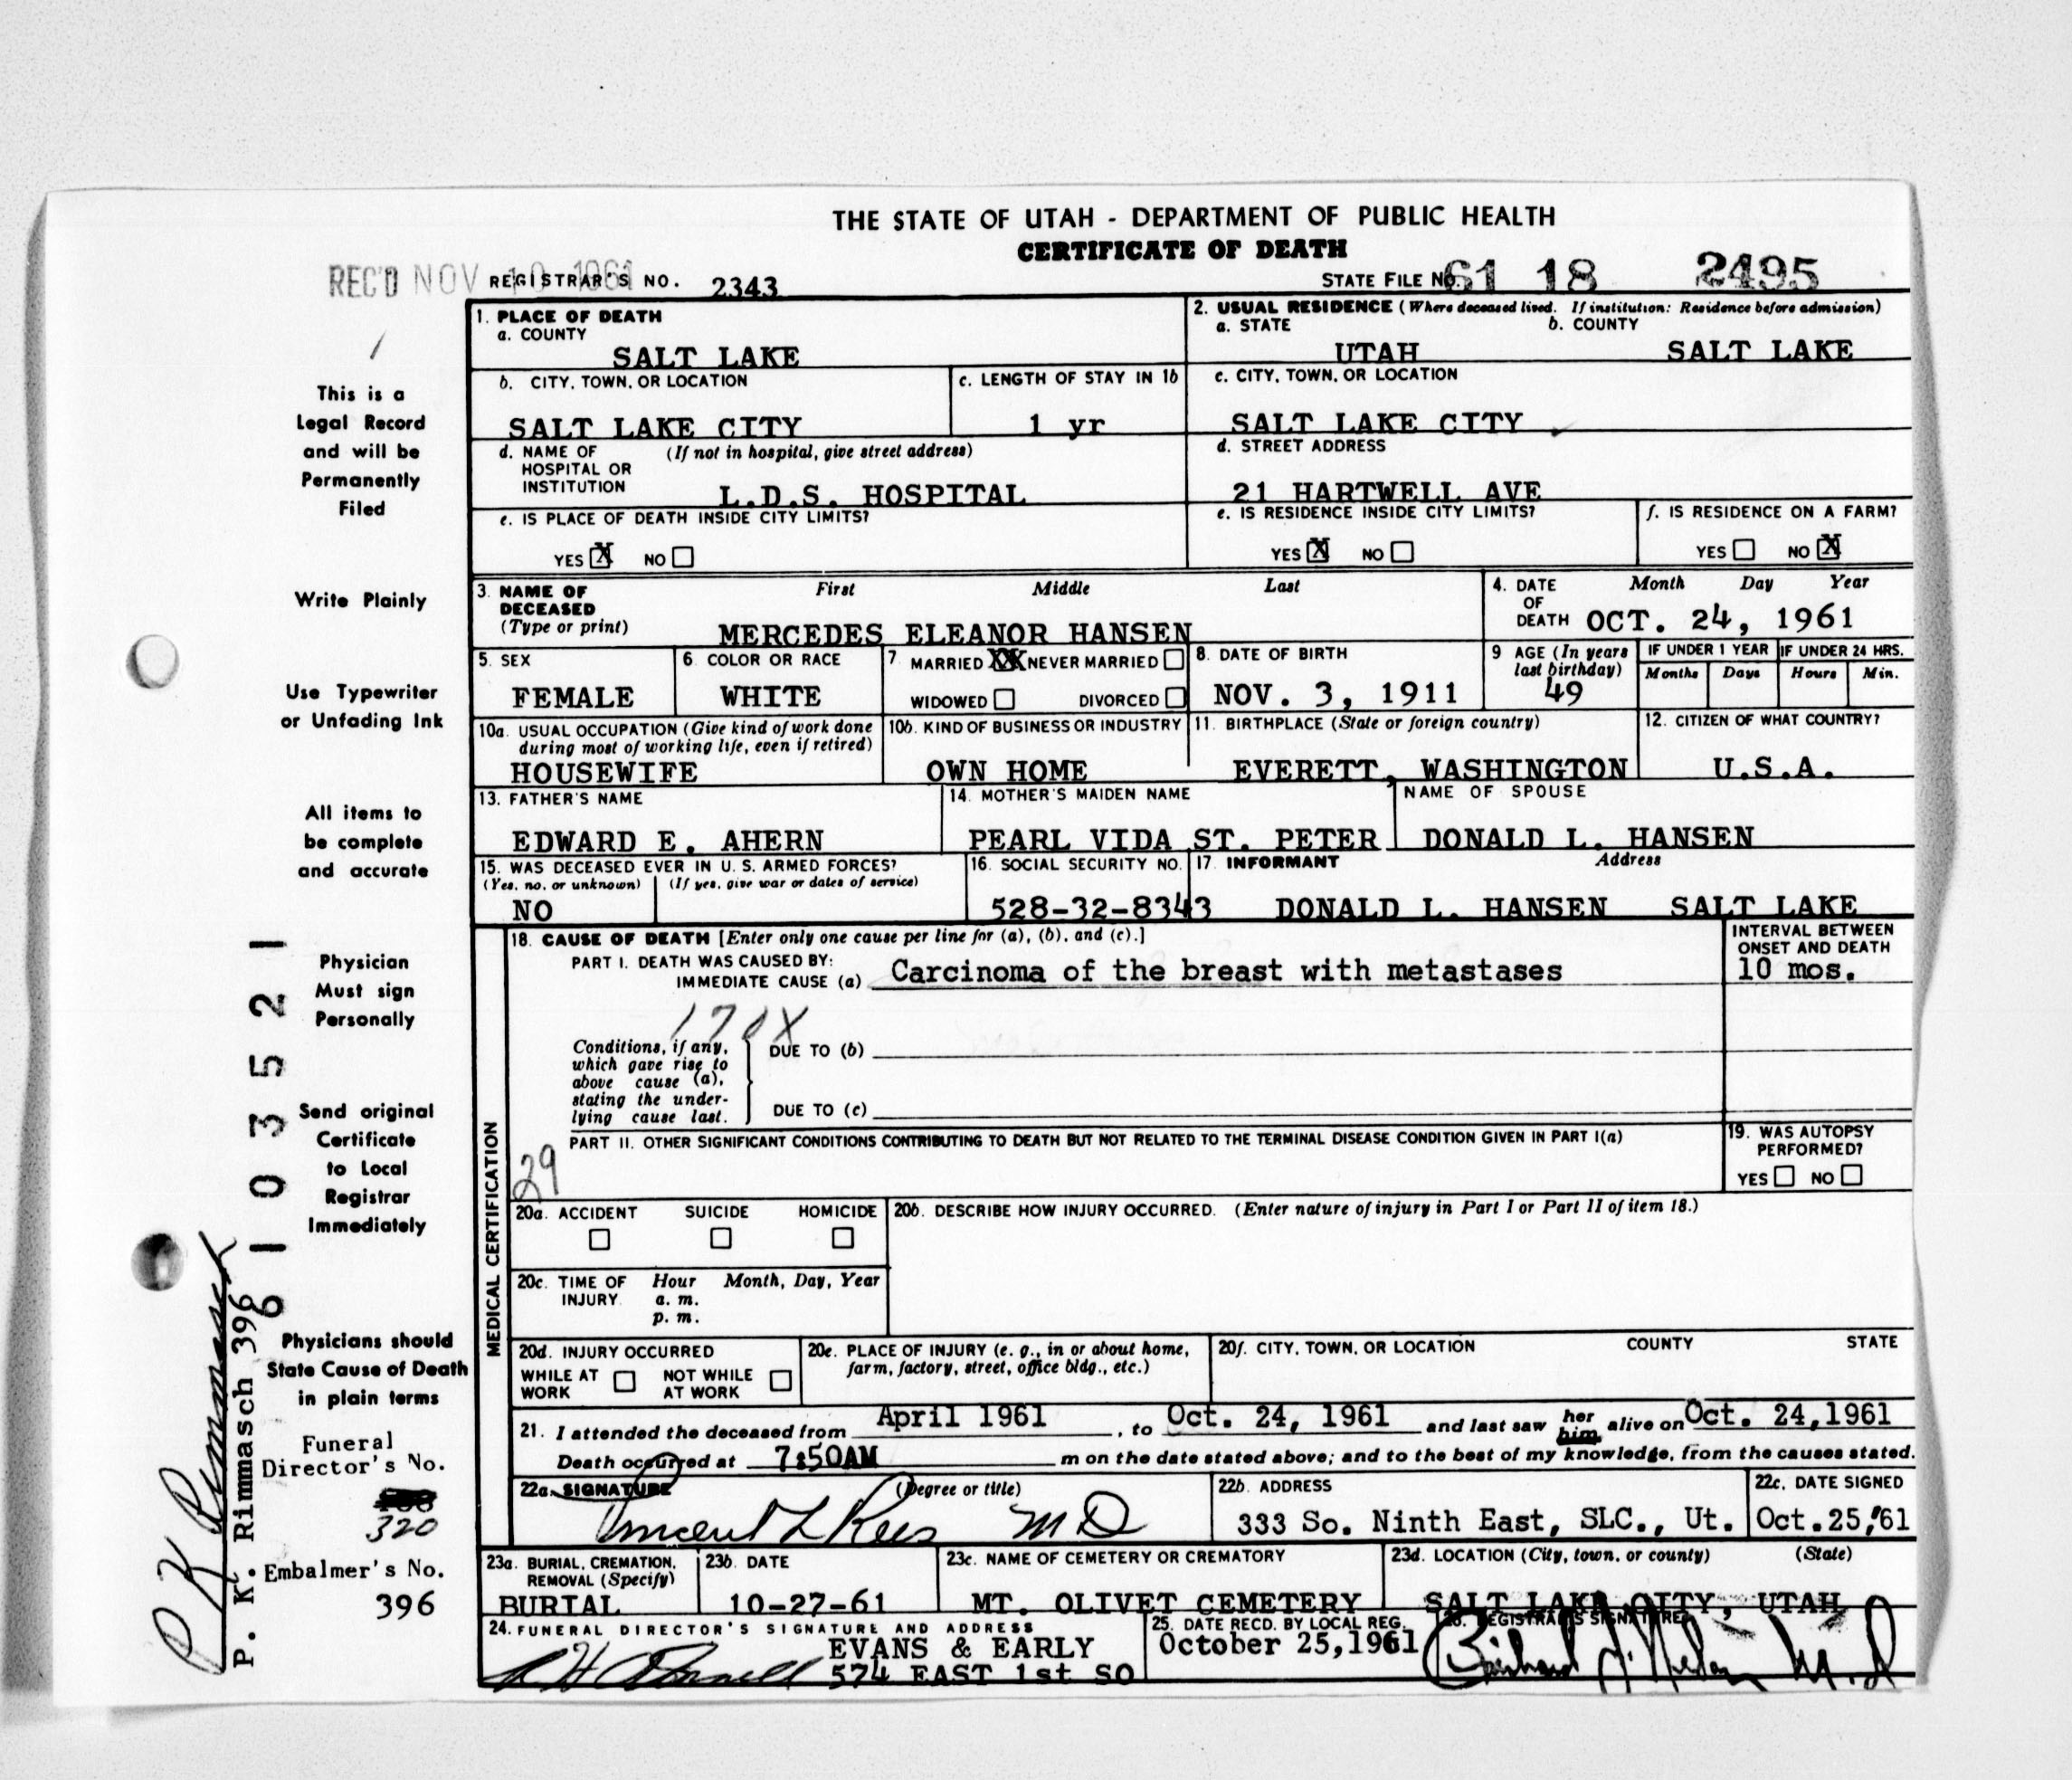 THE STATE OF UTAH - DEPARTMENT OF PUBLIC HEALTH
CERTIFICATE OF DEATH
REC'D NOV 10 1961 REGISTRAR'S NO. 2343 STATE FILE NO. 61 18 2495
1. PLACE OF DEATH
a. COUNTY
SALT LAKE
2. USUAL RESIDENCE (Where deceased lived. If institution: Residence before admission)
a. STATE b. COUNTY
UTAH SALT LAKE
b. CITY, TOWN, OR LOCATION
SALT LAKE CITY
c. LENGTH OF STAY IN 1b
1 yr
c. CITY, TOWN, OR LOCATION
SALT LAKE CITY
d. NAME OF (If not in hospital, give street address)
HOSPITAL OR
INSTITUTION
L.D.S. HOSPITAL
d. STREET ADDRESS
21 HARTWELL AVE
e. IS PLACE OF DEATH INSIDE CITY LIMITS?
YES X NO
e. IS RESIDENCE INSIDE CITY LIMITS?
YES X NO
f. IS RESIDENCE ON A FARM?
YES NO X
3. NAME OF First Middle Last
DECEASED
(Type or print)
MERCEDES ELEANOR HANSEN
4. DATE Month Day Year
OF
DEATH OCT. 24, 1961
5. SEX
FEMALE
6. COLOR OR RACE
WHITE
7. MARRIED XX NEVER MARRIED
WIDOWED DIVORCED
8. DATE OF BIRTH
NOV. 3, 1911
9 AGE (In years
last birthday)
49
IF UNDER 1 YEAR IF UNDER 24 HRS.
Months Days Hours Min.
10a. USUAL OCCUPATION (Give kind of work done
during most of working life, even if retired)
HOUSEWIFE
10b. KIND OF BUSINESS OR INDUSTRY
OWN HOME
11. BIRTHPLACE (State or foreign country)
EVERETT, WASHINGTON
12. CITIZEN OF WHAT COUNTRY?
U.S.A.
13. FATHER'S NAME
EDWARD E. AHERN
14. MOTHER'S MAIDEN NAME
PEARL VIDA ST. PETER
NAME OF SPOUSE
DONALD L. HANSEN
15. WAS DECEASED EVER IN U. S. ARMED FORCES?
(Yes, no, or unknown) (If yes, give war or dates of service)
NO
16. SOCIAL SECURITY NO.
528-32-8343
17. INFORMANT Address
DONALD L. HANSEN SALT LAKE
MEDICAL CERTIFICATION
18. CAUSE OF DEATH [Enter only one cause per line for (a), (b), and (c).]
PART I. DEATH WAS CAUSED BY:
IMMEDIATE CAUSE (a) Carcinoma of the breast with metastases
INTERVAL BETWEEN
ONSET AND DEATH
10 mos.
170X
Conditions, if any,
which gave rise to
above cause (a),
stating the under-
lying cause last.
DUE TO (b)
DUE TO (c)
PART II. OTHER SIGNIFICANT CONDITIONS CONTRIBUTING TO DEATH BUT NOT RELATED TO THE TERMINAL DISEASE CONDITION GIVEN IN PART I(a)
29
19. WAS AUTOPSY
PERFORMED?
YES NO
20a. ACCIDENT SUICIDE HOMICIDE
20b. DESCRIBE HOW INJURY OCCURRED. (Enter nature of injury in Part I or Part II of item 18.)
20c. TIME OF Hour Month, Day, Year
INJURY a. m.
p. m.
20d. INJURY OCCURRED
WHILE AT NOT WHILE
WORK AT WORK
20e. PLACE OF INJURY (e. g., in or about home,
farm, factory, street, office bldg., etc.)
20f. CITY, TOWN, OR LOCATION COUNTY STATE
21. I attended the deceased from April 1961, to Oct. 24, 1961 and last saw her him alive on Oct. 24,1961
Death occurred at 7:50AM m on the date stated above; and to the best of my knowledge, from the causes stated.
22a. SIGNATURE (Degree or title)
Vincent L Rees M D
22b. ADDRESS
333 So. Ninth East, SLC., Ut.
22c. DATE SIGNED
Oct.25,'61
23a. BURIAL, CREMATION,
REMOVAL (Specify)
BURIAL
23b. DATE
10-27-61
23c. NAME OF CEMETERY OR CREMATORY
MT. OLIVET CEMETERY
23d. LOCATION (City, town, or county) (State)
SALT LAKE CITY, UTAH
24. FUNERAL DIRECTOR'S SIGNATURE AND ADDRESS
EVANS & EARLY
574 EAST 1st SO
25. DATE RECD. BY LOCAL REG.
October 25,1961
26. REGISTRAR'S SIGNATURE
M.D
This is a
Legal Record
and will be
Permanently
Filed
Write Plainly
Use Typewriter
or Unfading Ink
All items to
be complete
and accurate
Physician
Must sign
Personally
Send original
Certificate
to Local
Registrar
Immediately
Physicians should
State Cause of Death
in plain terms
Funeral
Director's No.
320
Embalmer's No.
396
61 03521
P K Rimmasch
P. K. Rimmasch 396